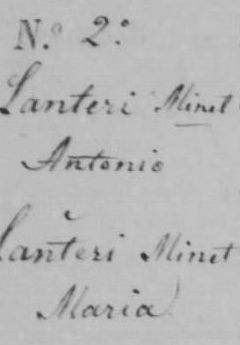 N.º 2.º
Lanteri Minet
Antonio
Lanteri Minet
Maria